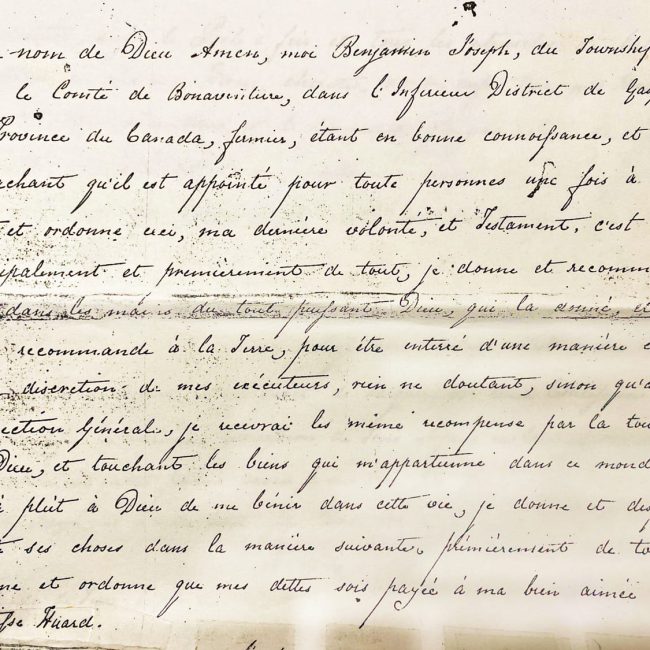 nom de Dieu Amen, moi Benjamin Joseph, du Townshy
le Comté de Bonaventure, dans l'Inferieur District de Gas
Province du Canada, fermier, étant en bonne connoissance, et
chant qu'il est appointé pour toute personnes une fois à
et ordonne ceci, ma dernière volonté, et Testament, c'est
cipalement et premièrement de tout, je donne et recomm
dans les mains du tout puissant Dieu, que la donné, et
recommande à la Terre, pour être enterré d'une manière
discretion de mes exécuteurs, rien ne doutant, sinon qu'a
ection Général, je recevrai les même recompense par la tou
Dieu, et touchant les biens qui m'appartienne dans ce mond
plût à Dieu de me bénir dans cette vie, je donne et dis
ses choses dans la manière suivante, prémièrement de to
ne et ordonne que mes dettes sois payée à ma bien aimée
Huard.